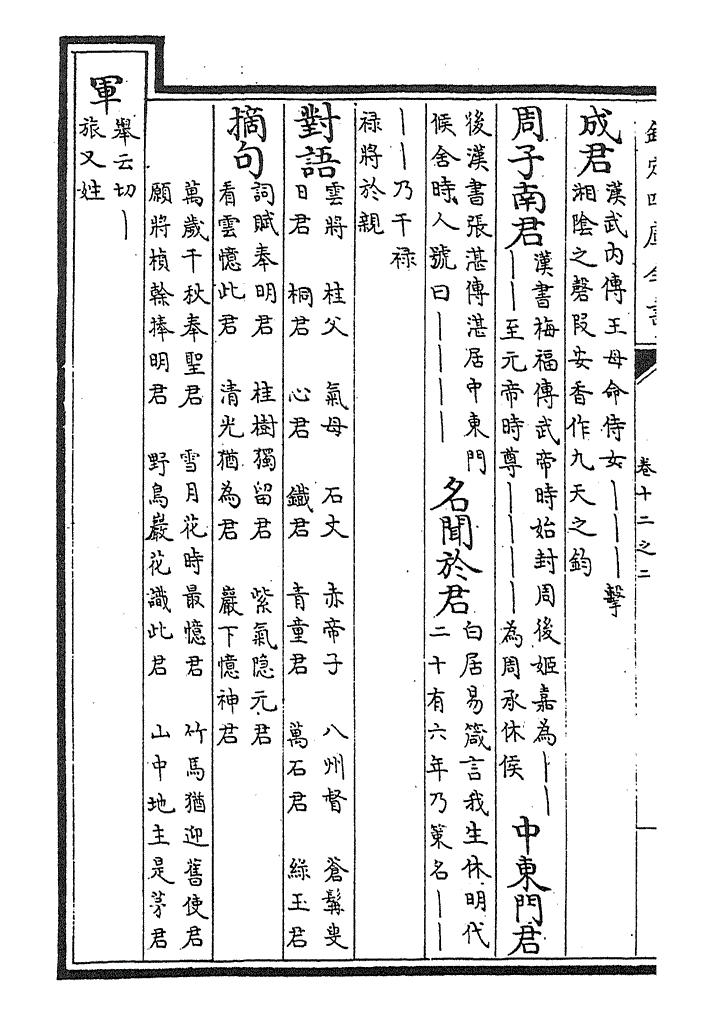 欽定四庫全書
卷十二之二
成君
漢武内傳王母命侍女｜｜｜擊
湘陰之磬叚安香作九天之鈞
周子南君
漢書梅福傳武帝時始封周後姬嘉為｜｜
｜｜至元帝時尊｜｜｜｜為周承休侯
中東門君
後漢書張湛傳湛居中東門
候舍時人號曰｜｜｜｜
名聞於君
白居易箴言我生休明代
二十有六年乃策名｜｜
｜｜乃干禄
禄將於親
對語
雲將 桂父 氣母 石丈 赤帝子 八州督 蒼髯叟
日君 桐君 心君 鐵君 青童君 萬石君 綠玉君
摘句
詞賦奉明君 桂樹獨留君 紫氣隐元君
看雲憶此君 清光猶為君 嚴下憶神君
萬歲千秋奉聖君 雪月花時最憶君 竹馬猶迎舊使君
願將楨榦捧明君 野鳥巖花識此君 山中地主是茅君
軍
舉云切｜
旅又姓